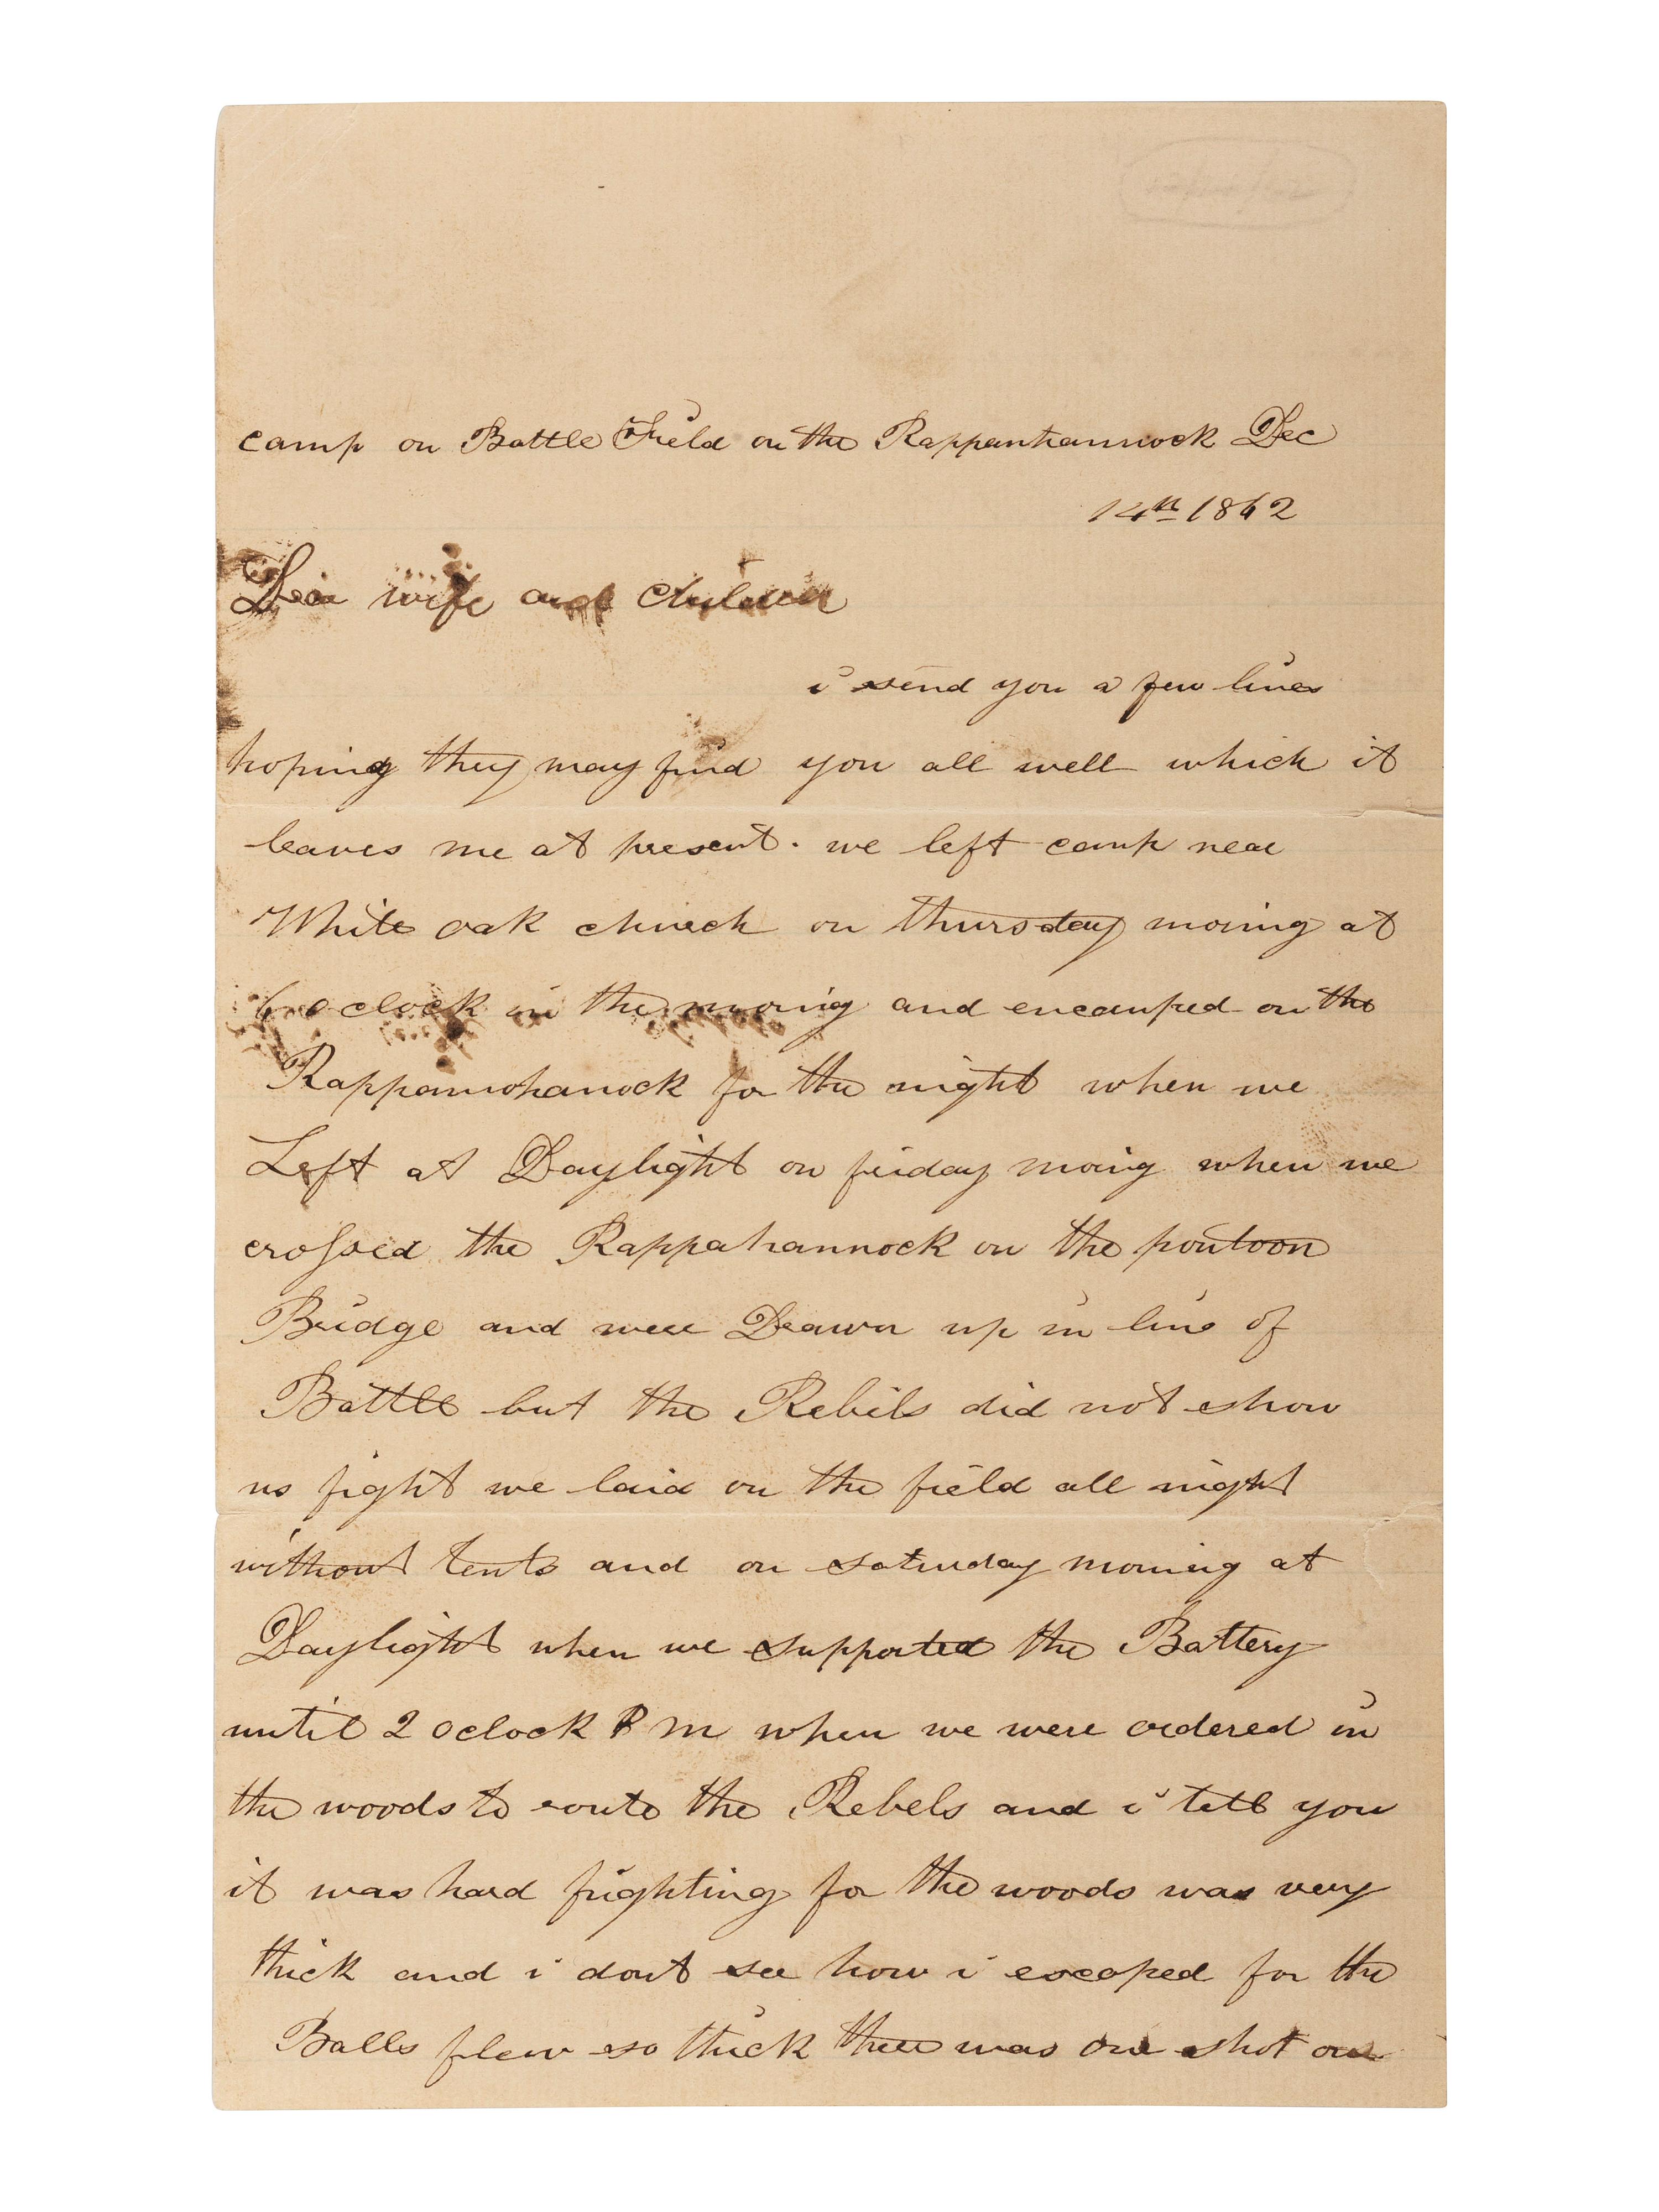 camp on Battle Field on the Rappanhannock Dec
14th 1862
Dear wife and Children
i send you a few lines
hoping they may find you all well which it
leaves me at present. we left camp near
White oak church on thursday moring at
6 o clock in the moring and encamped on the
Rappannohanock for the night when we
Left at Daylight on friday moring when we
crossed the Rappahannock on the pontoon
Bridge and were Drawn up in line of
Battle but the Rebils did not show
us fight we laid on the field all night
without tents and on saturday morning at
Daylight when we supported the Battery
until 2 oclock P M when we were ordered in
the woods to route the Rebels and i tell you
it was hard frighting for the woods was very
thick and i dont see how i escaped for the
Balls flew so thick there was one shot on